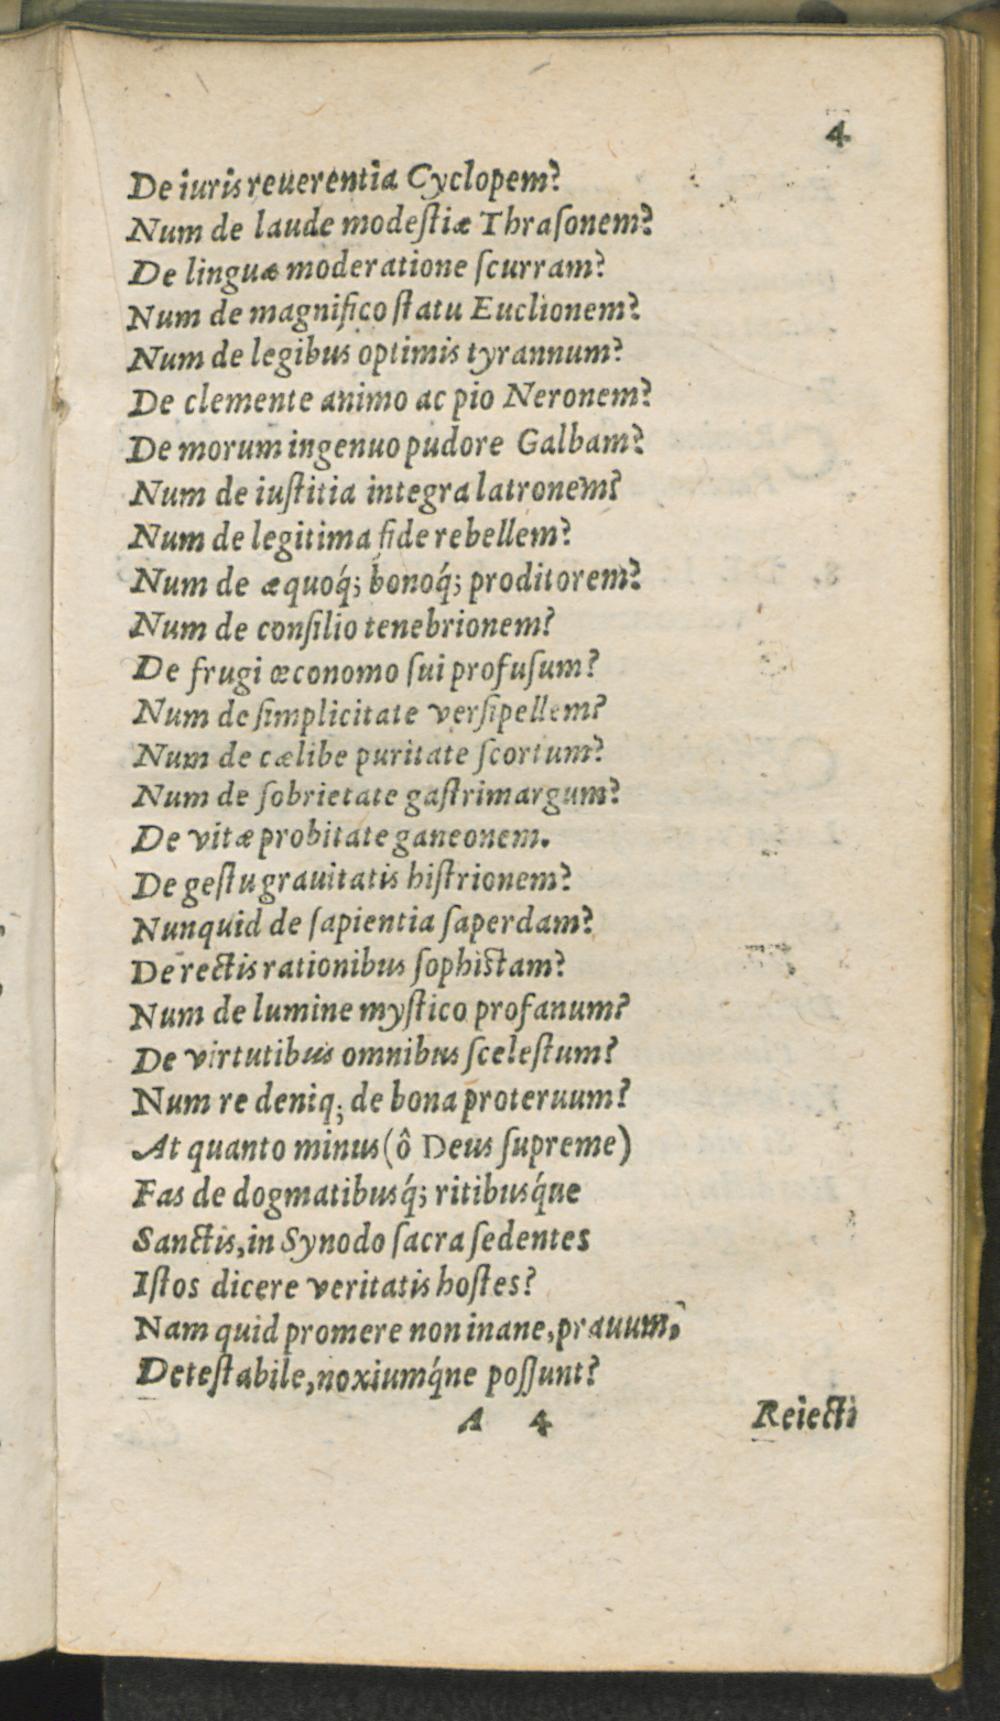 4
De iuris reuerentia Cyclopem?
Num de laude modeſtiæ Thraſonem?
De linguæ moderatione ſcurram?
Num de magnifico ſtatu Euclionem?
Num de legibus optimis tyrannum?
De clemente animo ac pio Neronem?
De morum ingenuo pudore Galbam?
Num de iuſtitia integra latronem?
Num de legitima fide rebellem?
Num de æquoq́; bonoq́; proditorem?
Num de conſilio tenebrionem?
De frugi œconomo ſui profuſum?
Num de ſimplicitate verſipellem?
Num de cælibe puritate ſcortum?
Num de ſobrietate gaſtrimargum?
De vitæ probitate ganeonem.
De geſtu grauitatis hiſtrionem?
Nunquid de ſapientia ſaperdam?
De rectis rationibus ſophistam?
Num de lumine myſtico profanum?
De virtutibus omnibus ſceleſtum?
Num re deniq; de bona proteruum?
At quanto minus (ô Deus ſupreme)
Fas de dogmatibusq́; ritibusq́ue
Sanctis, in Synodo ſacra ſedentes
Iſtos dicere veritatis hoſtes?
Nam quid promere non inane, prauum,
Deteſtabile, noxiumq́ne poſſunt?
A 4 Reiecti